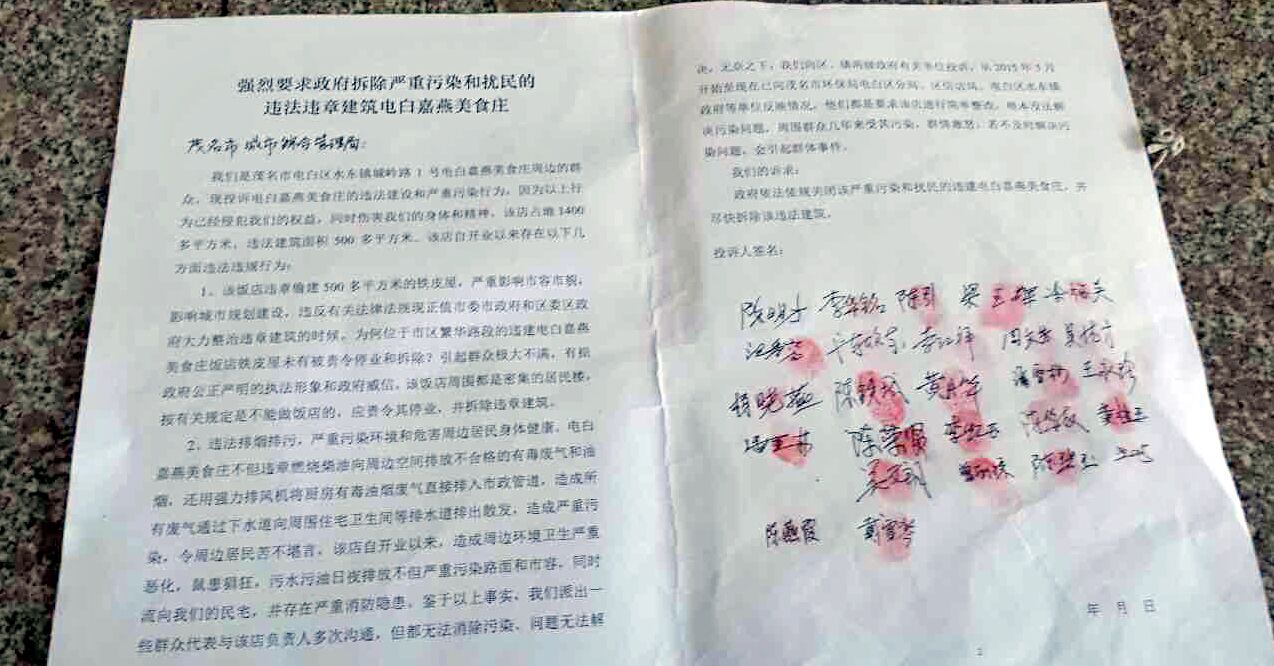 强烈要求政府拆除严重污染和扰民的
违法违章建筑电白嘉燕美食庄
茂名市城市综合管理局：
我们是茂名市电白区水东镇城岭路1号电白嘉燕美食庄周边的群
众，现投诉电白嘉燕美食庄的违法建设和严重污染行为，因为以上行
为已经侵犯我们的权益，同时伤害我们的身体和精神，该店占地1400
多平方米，违法建筑面积500多平方米。该店自开业以来存在以下几
方面违法违规行为：
1、该饭店违章偷建500多平方米的铁皮屋，严重影响市容市貌，
影响城市规划建设，违反有关法律法规现正值市委市政府和区委区政
府大力整治违章建筑的时候，为何位于市区繁华路段的违建电白嘉燕
美食庄饭店铁皮屋未有被责令停业和拆除？引起群众极大不满，有损
政府公正严明的执法形象和政府威信。该饭店周围都是密集的居民楼，
按有关规定是不能做饭店的，应责令其停业，并拆除违章建筑。
2、违法排烟排污，严重污染环境和危害周边居民身体健康。电白
嘉燕美食庄不但违章燃烧柴油向周边空间排放不合格的有毒废气和油
烟，还用强力排风机将厨房有毒油烟废气直接排入市政管道，造成所
有废气通过下水道向周围住宅卫生间等排水道排出散发，造成严重污
染，令周边居民苦不堪言。该店自开业以来，造成周边环境卫生严重
恶化，鼠患猖狂，污水污油日夜排放不但严重污染路面和市容，同时
流向我们的民宅，并存在严重消防隐患。鉴于以上事实，我们派出一
些群众代表与该店负责人多次沟通，但都无法消除污染、问题无法解
决，无奈之下，我们向区、镇两级政府有关单位投诉，从2015年5月
开始至现在已向茂名市环保局电白区分局、区信访局、电白区水东镇
政府等单位反映情况，他们都是要求该店进行简单整改，根本没法解
决污染问题，周围群众几年来受其污染，群情激怒；若不及时解决污
染问题，会引起群体事件。
我们的诉求：
政府依法依规关闭该严重污染和扰民的违建电白嘉燕美食庄，并
尽快拆除该违法建筑。
投诉人签名：
陈明才 陈引
杨晓燕 陈铁斌 黄月华
陈燕霞 黄雪琴
年 月 日
2